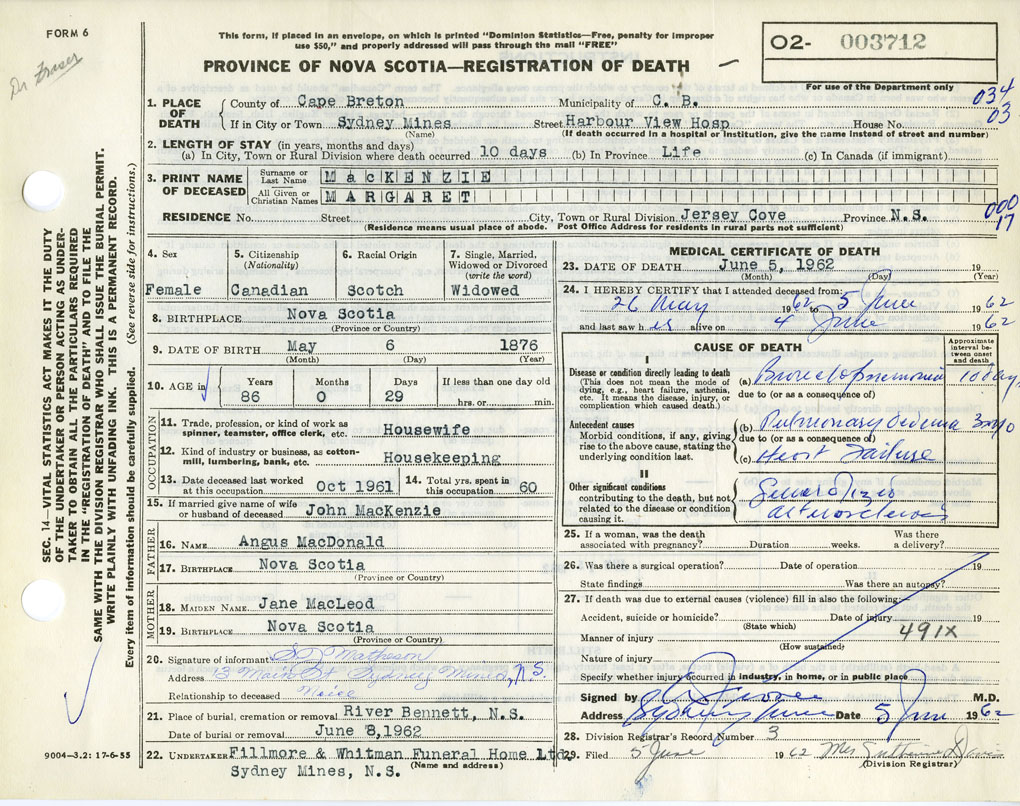 FORM 6
Dr Fraser
This form, if placed in an envelope, on which is printed "Dominion Statistics—Free, penalty for improper
use $50," and properly addressed will pass through the mail "FREE"
PROVINCE OF NOVA SCOTIA—REGISTRATION OF DEATH
02- 003712
For use of the Department only
034
03
1. PLACE OF DEATH County of Cape Breton Municipality of C. B.
If in City or Town Sydney Mines Street Harbour View Hosp House No.
(Name) (If death occurred in a hospital or institution, give the name instead of street and number)
2. LENGTH OF STAY (in years, months and days)
(a) In City, Town or Rural Division where death occurred 10 days (b) In Province Life (c) In Canada (if immigrant)
3. PRINT NAME OF DECEASED Surname or Last Name MacKENZIE
All Given or Christian Names MARGARET
000
17
RESIDENCE No. Street City, Town or Rural Division Jersey Cove Province N.S.
(Residence means usual place of abode. Post Office Address for residents in rural parts not sufficient)
4. Sex Female
5. Citizenship (Nationality) Canadian
6. Racial Origin Scotch
7. Single, Married, Widowed or Divorced (write the word) Widowed
8. BIRTHPLACE Nova Scotia
(Province or Country)
9. DATE OF BIRTH May 6 1876
(Month) (Day) (Year)
10. AGE in Years 86 Months 0 Days 29 If less than one day old hrs. or min.
OCCUPATION
11. Trade, profession, or kind of work as spinner, teamster, office clerk, etc. Housewife
12. Kind of industry or business, as cotton-mill, lumbering, bank, etc. Housekeeping
13. Date deceased last worked at this occupation Oct 1961 14. Total yrs. spent in this occupation 60
15. If married give name of wife or husband of deceased John MacKenzie
FATHER
16. NAME Angus MacDonald
17. BIRTHPLACE Nova Scotia
(Province or Country)
MOTHER
18. MAIDEN NAME Jane MacLeod
19. BIRTHPLACE Nova Scotia
(Province or Country)
20. Signature of informant Matheson
Address 13 Main St Sydney Mines, N.S.
Relationship to deceased
21. Place of burial, cremation or removal River Bennett, N.S.
Date of burial or removal June 8,1962
22. UNDERTAKER Fillmore & Whitman Funeral Home Ltd.
(Name and address)
Sydney Mines, N.S.
MEDICAL CERTIFICATE OF DEATH
23. DATE OF DEATH June 5, 1962 19
(Month) (Day) (Year)
24. I HEREBY CERTIFY that I attended deceased from:
26 May 1962 to 5 June 1962
and last saw her alive on 4 June 1962
CAUSE OF DEATH
Approximate interval between onset and death
I
Disease or condition directly leading to death
(This does not mean the mode of dying, e.g., heart failure, asthenia, etc. It means the disease, injury, or complication which caused death.)
(a) Bronchopneumonia 10 days
due to (or as a consequence of)
Antecedent causes
Morbid conditions, if any, giving rise to the above cause, stating the underlying condition last.
(b) Pulmonary Oedema 3 mo
due to (or as a consequence of)
(c) Heart Failure
II
Other significant conditions
contributing to the death, but not related to the disease or condition causing it.
Generalized
arteriosclerosis
25. If a woman, was the death associated with pregnancy? Duration weeks. Was there a delivery?
26. Was there a surgical operation? Date of operation 19
State findings Was there an autopsy?
27. If death was due to external causes (violence) fill in also the following:
Accident, suicide or homicide? Date of injury 19
(State which)
491X
Manner of injury
(How sustained)
Nature of injury
Specify whether injury occurred in industry, in home, or in public place
Signed by M.D.
Address Sydney Mines Date 5 June 1962
28. Division Registrar's Record Number 3
29. Filed 5 June 1962 Mrs
(Division Registrar)
SEC. 14—VITAL STATISTICS ACT MAKES IT THE DUTY
OF THE UNDERTAKER OR PERSON ACTING AS UNDER-
TAKER TO OBTAIN ALL THE PARTICULARS REQUIRED
IN THE "REGISTRATION OF DEATH" AND TO FILE THE
SAME WITH THE DIVISION REGISTRAR WHO SHALL ISSUE THE BURIAL PERMIT.
WRITE PLAINLY WITH UNFADING INK. THIS IS A PERMANENT RECORD.
Every item of information should be carefully supplied. (See reverse side for instructions.)
9004-3.2: 17-6-55